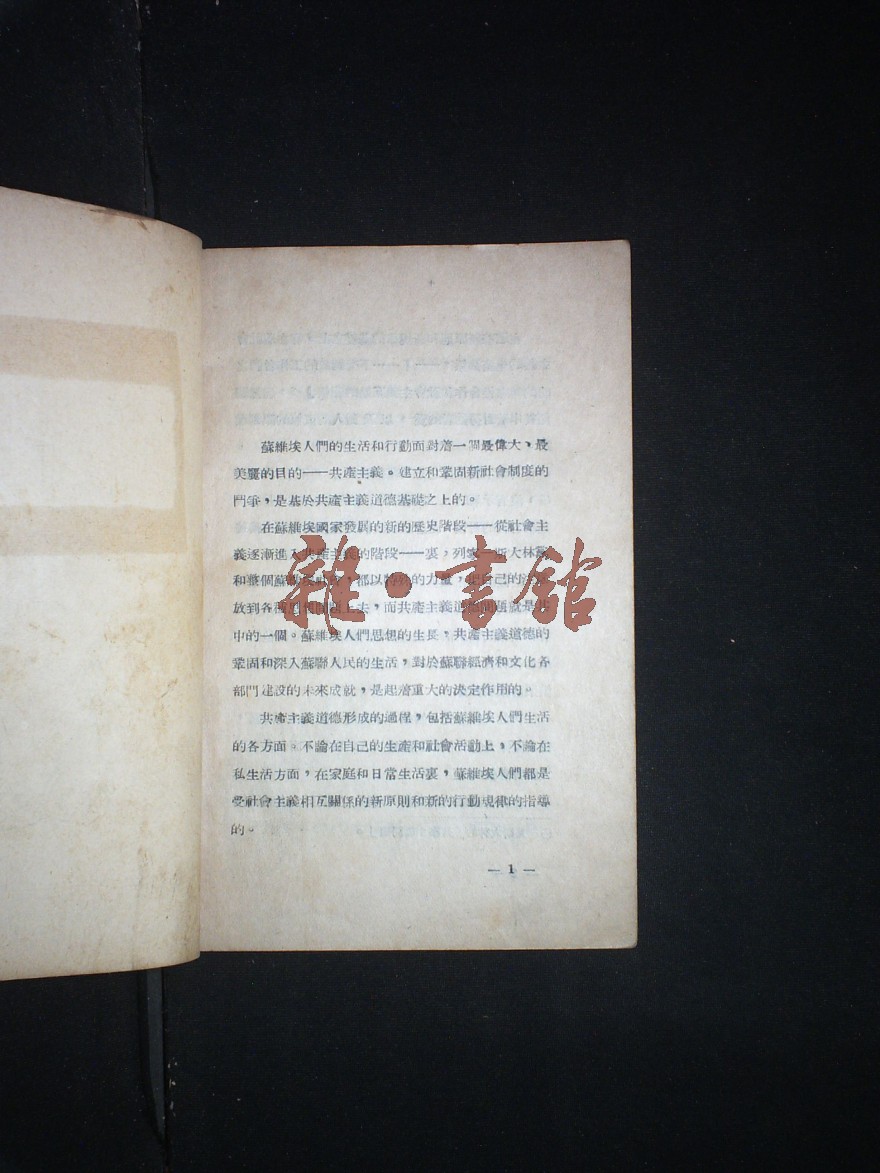 蘇維埃人們的生活和行動面對着一個最偉大、最
美麗的目的——共產主義。建立和鞏固新社會制度的
鬥爭，是基於共產主義道德基礎之上的。
在蘇維埃國家發展的新的歷史階段——從社會主
義逐漸進入共產主義的階段——裏，列寧—斯大林黨
和整個蘇維埃社會，都以特殊的力量，把自己的注意
放到各種思想問題上去，而共產主義道德問題就是其
中的一個。蘇維埃人們思想的生長，共產主義道德的
鞏固和深入蘇聯人民的生活，對於蘇聯經濟和文化各
部門建設的未來成就，是起着重大的決定作用的。
共產主義道德形成的過程，包括蘇維埃人們生活
的各方面。不論在自己的生產和社會活動上，不論在
私生活方面，在家庭和日常生活裏，蘇維埃人們都是
受社會主義相互關係的新原則和新的行動規律的指導
的。
— 1 —
雜·書館